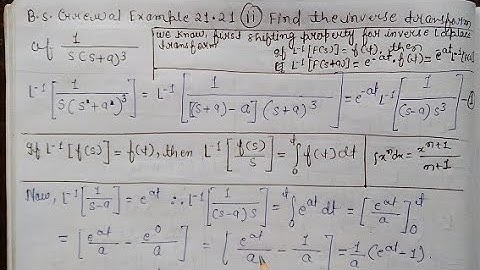 B.S. Grrewal Example 21.21 (ii) Find the inverse transform
of 1/(s(s+a)^3)
We know, first shifting property for inverse Laplace
transform
If L^-1[F(s)] = f(t), then
L^-1[F(s+a)] = e^-at . f(t) = e^-at L^-1[F(s)]
L^-1[1/(s(s^2+a^2)^3)] = L^-1[1/([(s+a)-a](s+a)^3)] = e^-at L^-1[1/((s-a)s^3)]
If L^-1[f(s)] = f(t), then L^-1[f(s)/s] = ∫_0^t f(t)dt
∫x^n dx = x^(n+1)/(n+1)
Now, L^-1[1/(s-a)] = e^at ∴ L^-1[1/((s-a)s)] = ∫_0^t e^at dt = [e^at/a]_0^t
= [e^at/a - e^0/a] = [e^at/a - 1/a] = 1/a (e^at-1).